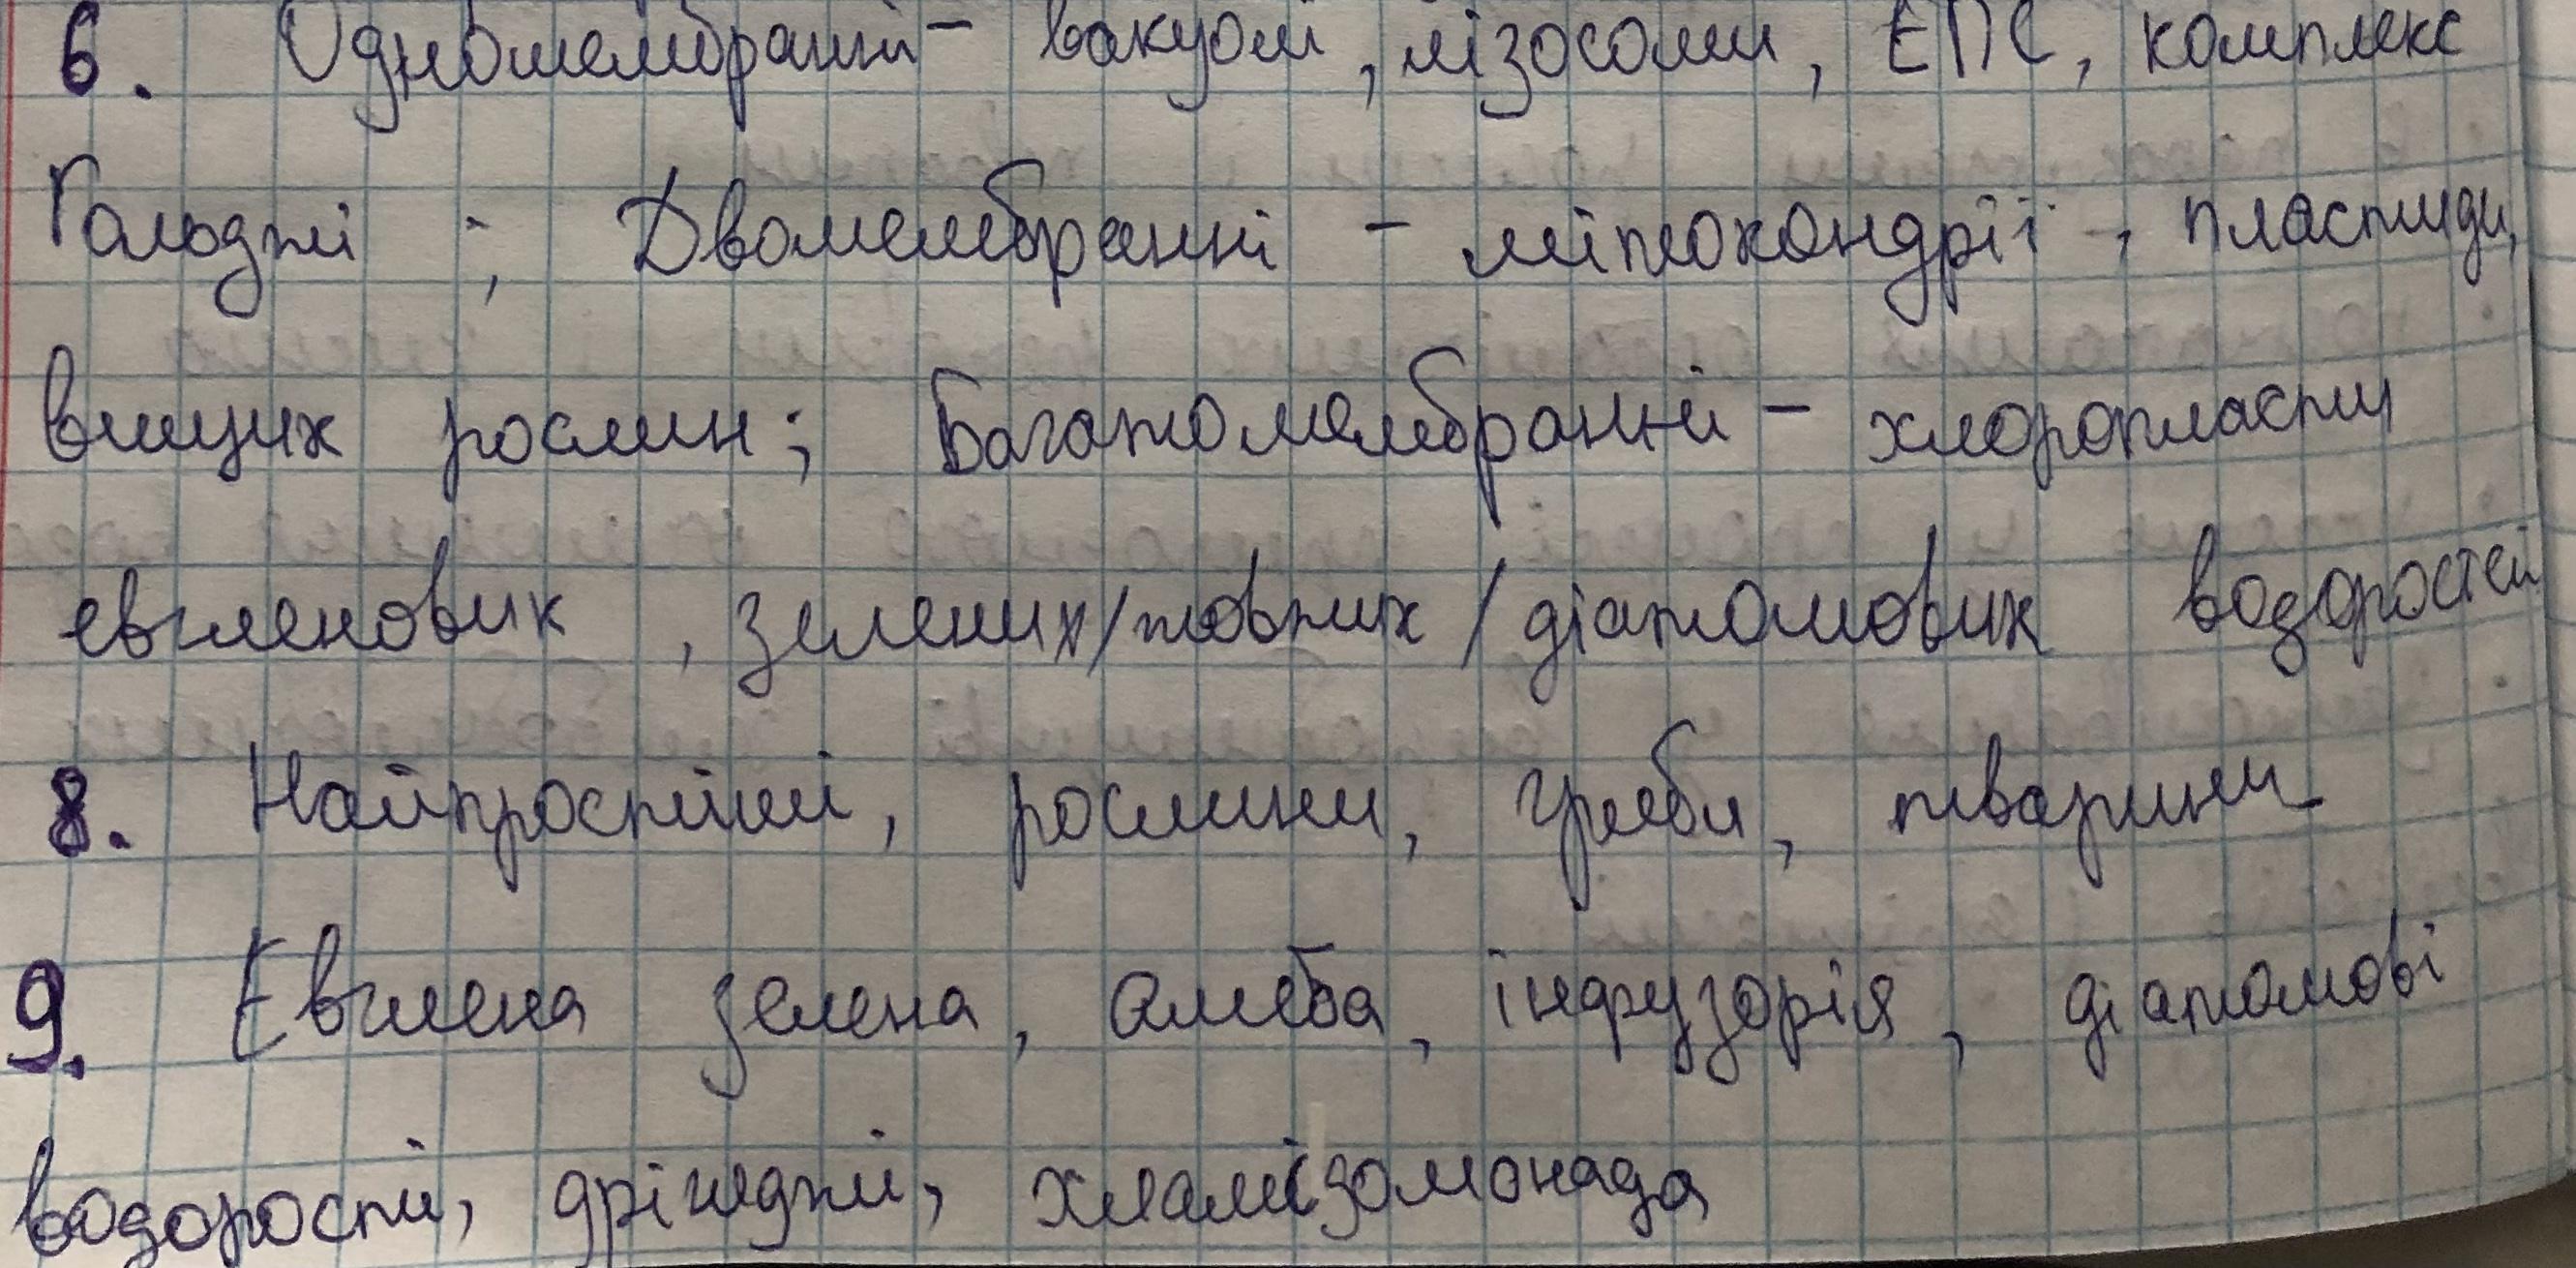 6. Одномембранні - вакуолі, лізосоми, ЕПС, комплекс
Гольджі ; Двомембранні - мітохондрії, пластиди,
вищих рослин; Багатомембранні - хлоропласти
евгленових, зелених/жовтих/діатомових водоростей
8. Найпростіші, рослини, гриби, тварини
9. Евглена зелена, амеба, інфузорія, діатомові
водорості, дріжджі, хламідомонада